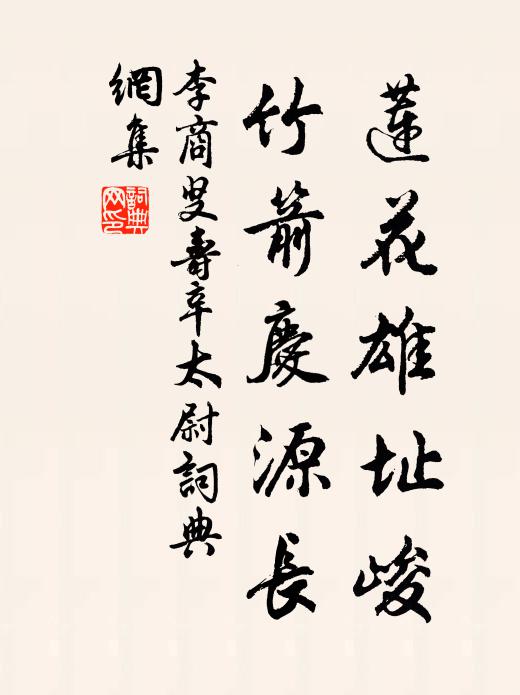 蓮花雄址峻
竹箭慶源長
李商叟壽辛太尉詞典
網集
詞典網印